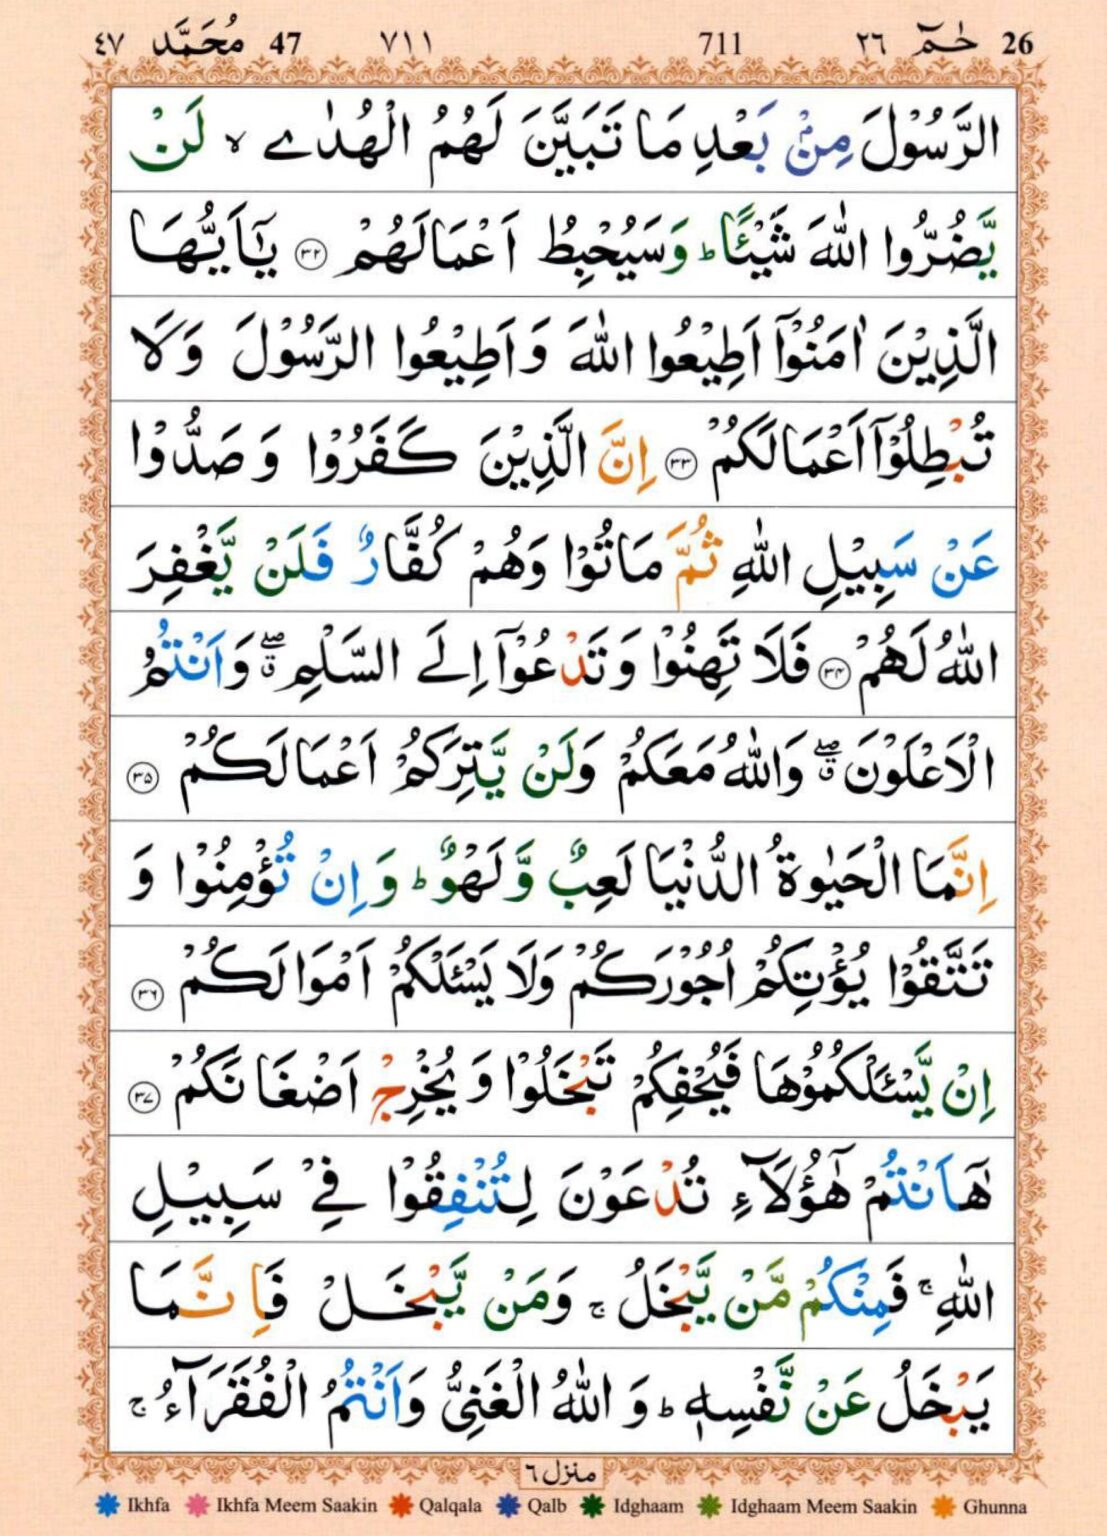 26 حٰمٓ ٢٦ 711 ٧١١ 47 مُحَمَّد ٤٧
الرَّسُوْلَ مِنْۢ بَعْدِ مَا تَبَيَّنَ لَهُمُ الْهُدٰى ۙ لَنْ
يَّضُرُّوا اللّٰهَ شَيْـًٔا ؕ وَسَيُحْبِطُ اَعْمَالَهُمْ ﴿۳۲﴾ يٰٓاَيُّهَا
الَّذِيْنَ اٰمَنُوْٓا اَطِيْعُوا اللّٰهَ وَاَطِيْعُوا الرَّسُوْلَ وَلَا
تُبْطِلُوْٓا اَعْمَالَكُمْ ﴿۳۳﴾ اِنَّ الَّذِيْنَ كَفَرُوْا وَصَدُّوْا
عَنْ سَبِيْلِ اللّٰهِ ثُمَّ مَاتُوْا وَهُمْ كُفَّارٌ فَلَنْ يَّغْفِرَ
اللّٰهُ لَهُمْ ﴿۳۴﴾ فَلَا تَهِنُوْا وَتَدْعُوْٓا اِلَى السَّلْمِ ۖۗ وَاَنْتُمُ
الْاَعْلَوْنَ ۖۗ وَاللّٰهُ مَعَكُمْ وَلَنْ يَّتِرَكُمْ اَعْمَالَكُمْ ﴿۳۵﴾
اِنَّمَا الْحَيٰوةُ الدُّنْيَا لَعِبٌ وَّلَهْوٌ ؕ وَاِنْ تُؤْمِنُوْا وَ
تَتَّقُوْا يُؤْتِكُمْ اُجُوْرَكُمْ وَلَا يَسْـَٔلْكُمْ اَمْوَالَكُمْ ﴿۳۶﴾
اِنْ يَّسْـَٔلْكُمُوْهَا فَيُحْفِكُمْ تَبْخَلُوْا وَيُخْرِجْ اَضْغَانَكُمْ ﴿۳۷﴾
هٰۤاَنْتُمْ هٰٓؤُلَآءِ تُدْعَوْنَ لِتُنْفِقُوْا فِيْ سَبِيْلِ
اللّٰهِ ۚ فَمِنْكُمْ مَّنْ يَّبْخَلُ ۚ وَمَنْ يَّبْخَلْ فَاِنَّمَا
يَبْخَلُ عَنْ نَّفْسِهٖ ؕ وَاللّٰهُ الْغَنِيُّ وَاَنْتُمُ الْفُقَرَآءُ ۚ
منزل ٦
Ikhfa Ikhfa Meem Saakin Qalqala Qalb Idghaam Idghaam Meem Saakin Ghunna